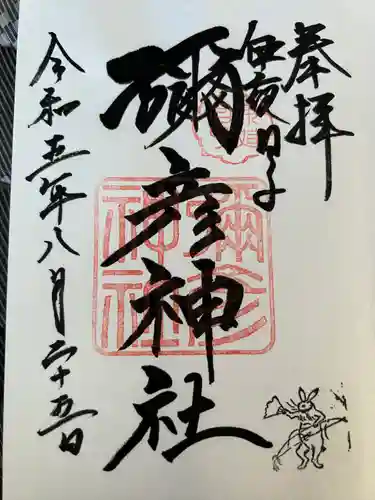 奉拝
彌彦神社
令和五年八月二十五日
彌彦神社